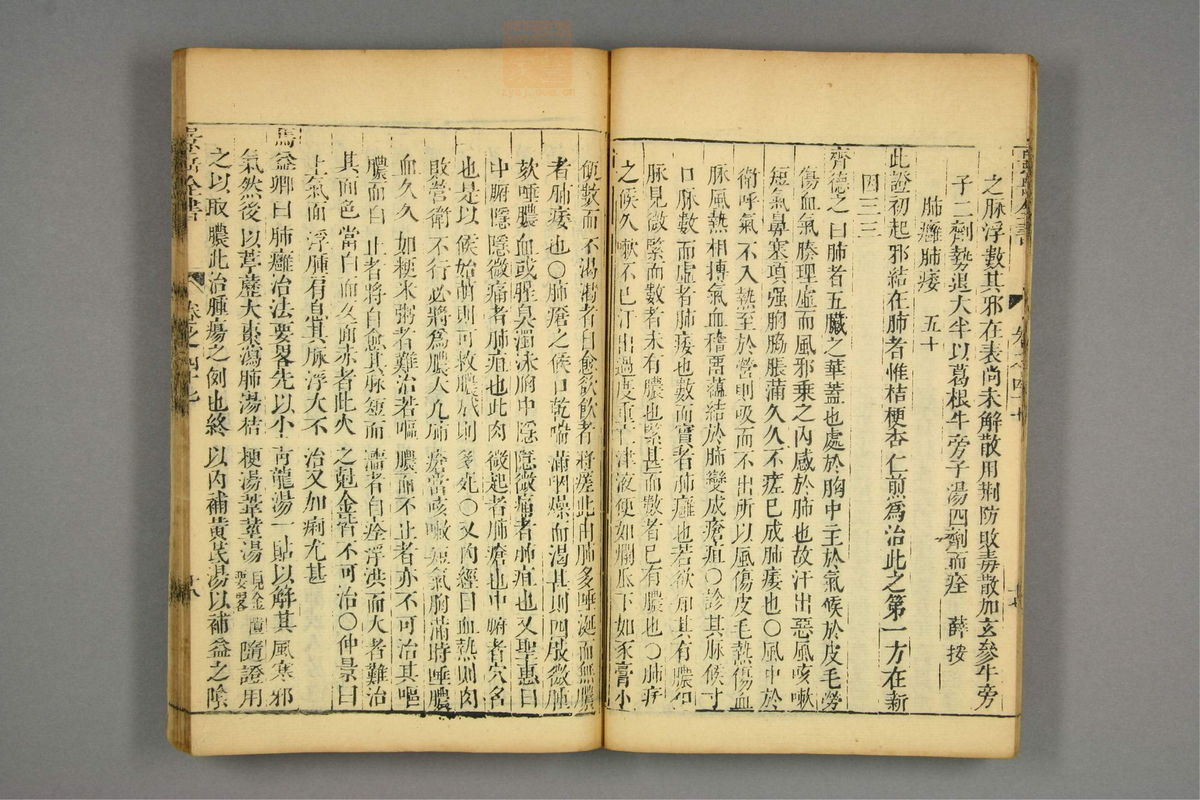 之脉浮數其邪在表尚未解散用荆防敗毒散加玄參牛旁
子二劑勢退大半以葛根牛旁子湯四劑而痊 薛按
肺癰肺痿 五十
此證初起邪結在肺者惟桔梗杏仁煎為治此之第一方在新
因三三
齊德之曰肺者五臟之華蓋也處於胸中主於氣候於皮毛勞
傷血氣腠理虛而風邪乘之内感於肺也故汗出惡風咳嗽
短氣鼻塞項强胸脇脹滿久久不瘥已成肺痿也○風中於
衛呼氣不入熱至於營則吸而不出所以風傷皮毛熱傷血
脉風熱相摶氣血稽留蘊結於肺變成瘡疽○診其脉候寸
口脉數而虛者肺痿也數而實者肺癰也若欲知其有膿但
脉見微緊而數者未有膿也緊甚而數者已有膿也○肺痿
之候久嗽不已汗出過度重亡津液便如爛瓜下如豕膏小
便數而不渴渴者自愈欲飲者將瘥此由肺多唾涎而無膿
者肺痿也○肺瘡之候口乾喘滿咽燥而渴甚則四肢微腫
欬唾膿血或腥臭濁沫胸中隱隱微痛者肺疽也又聖惠曰
中腑隱隱微痛者肺疽也此肉微起者肺瘡也中腑者穴名
也是以候始萌則可救膿成則多死○又内經曰血熱則肉
敗營衛不行必將為膿大凡肺瘡當咳嗽短氣胸滿時唾膿
血久久如粳米粥者難治若嘔膿而不止者亦不可治其嘔
膿而自止者將自愈其脉短而濇者自痊浮洪而大者難治
其面色當白而反面赤者此火之尅金皆不可治○仲景曰
上氣面浮腫肩息其脉浮大不治又加痢尤甚
馬益卿曰肺癰治法要畧先以小青龍湯一貼以解其風寒邪
氣然後以葶藶大棗瀉肺湯桔梗湯葦莖湯 見金匱要畧 隨證用
之以取膿此治腫瘍之例也終以内補黃芪湯以補益之陰
景岳全書 卷之四十七